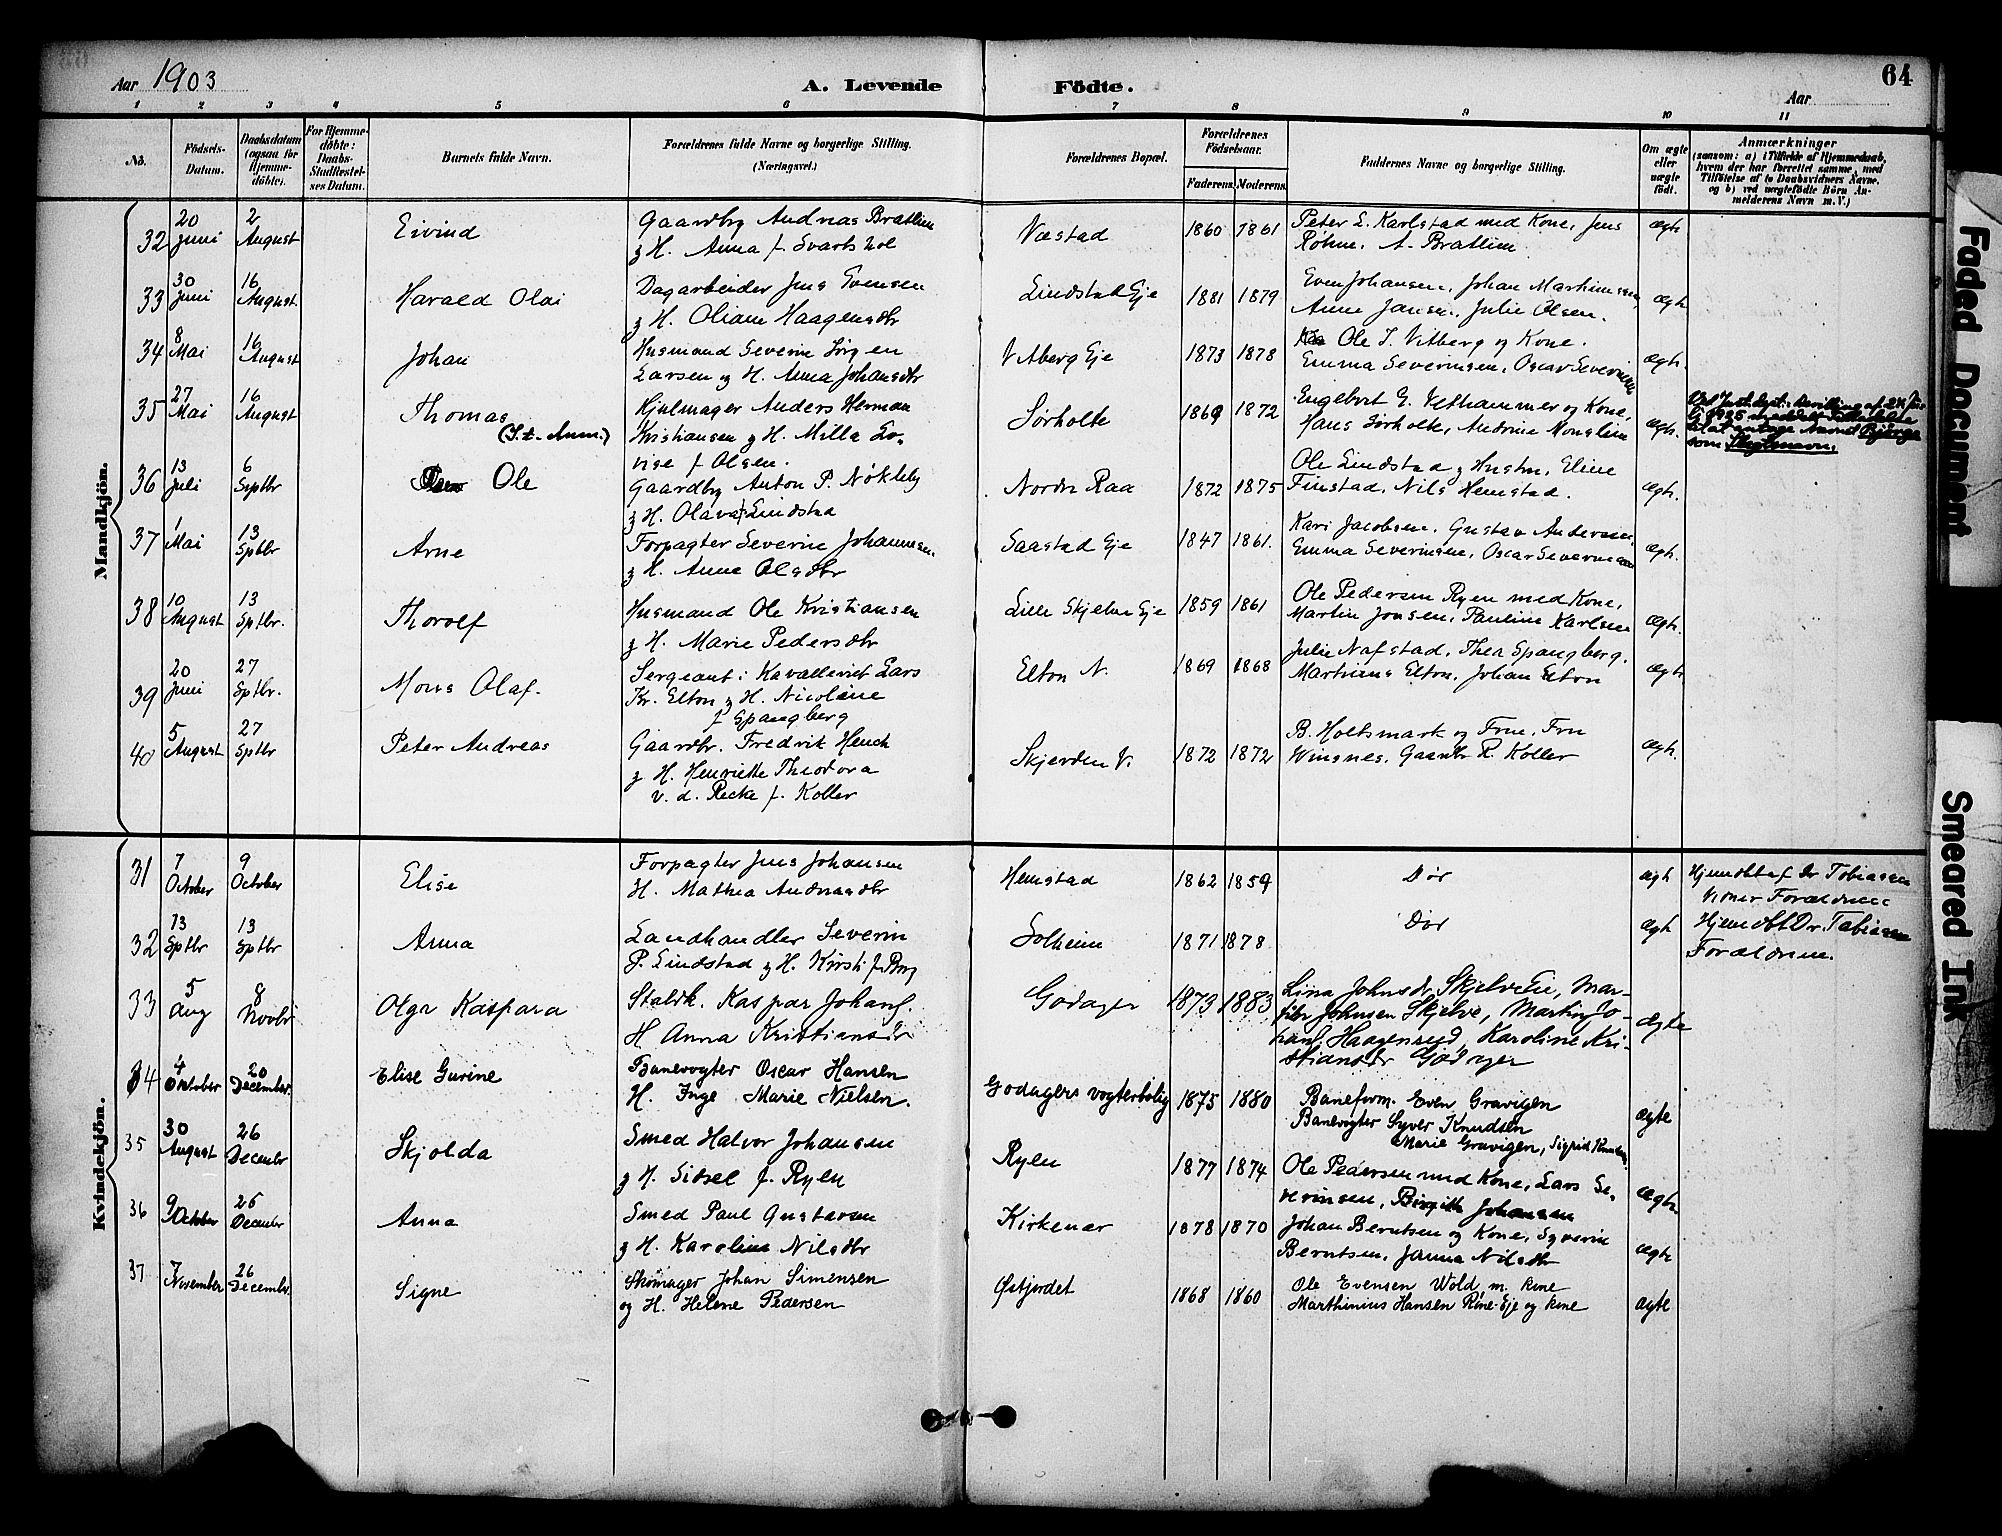 Aar 1903
A. Levende Födte.
Aar
64
1 2 3 4 5 6 7 8 9 10 11
No.
Födsels-Datum.
Daabsdatum (ogsaa for Hjemme-döbte).
For Hjemme-döbte: Daabs-Stadfæstel-ses Datum.
Barnets fulde Navn.
Forældrenes fulde Navne og borgerlige Stilling.
(Næringsvei.)
Forældrenes Bopæl.
Forældrenes Födselsaar.
Faderens. Moderens.
Faddernes Navne og borgerlige Stilling.
Om ægte eller uægte födt.
Anmærkninger
(saasom: a) i Tilfælde af Hjemmedaab,
hvem der har forrettet samme, med
Tilföielse af to Daabsvidners Navne,
og b) ved uægtefödte Börn An-
melderens Navn m. V.)
Mandkjön.
32 20 Juni 2 August Eivind
Gaardbr Andreas Bratlien
g H. Anna f. Svartshol
Næstad 1860 1861
Peter L. Karlstad med Kone, Jens
Røhne, A. Bratlien
ægte
33 30 Juni 16 August Harald Olai
Dagarbeider Jens Evensen
g H. Oliane Haagensdtr
Lindstad Eje 1881 1879
Even Johansen, Johan Marthinsen,
Anne Jansen, Julie Olsen.
ægte
34 8 Mai 16 August Johan
Husmand Severin Jørgen
Larsen og H. Anna Johansdtr
Vitberg Eje 1873 1878
Ole J. Vitberg og Kone.
Emma Severinsen, Oscar Severinsen
ægte
35 27 Mai 16 August Thomas
(S. t. Anm.)
Hjulmager Anders Herman
Kristiansen g H. Milla Lo-
vise f Olsen.
Sørholte 1869 1872
Engebret E. Vethammer og Kone,
Hans Sørholte, Andrine Monslien
ægte.
som Slegtsnavn.
36 13 Juli 6 Septbr Ole
Gaardbr Anton P. Nøkleby
g H. Olava f Lindstad
Nordre Raa 1872 1875
Ole Lindstad g Hustru, Eline
Finstad, Nils Hemstad.
ægte.
37 1 Mai 13 Sptbr Arne
Forpagter Severin Johannesen
g H. Anne Olsdtr
Saastad Eje 1847 1861.
Kari Jacobsen, Gustav Andersen,
Emma Severinsen, Oscar Severinsen
ægte.
38 10 August 13 Sptbr. Thorolf
Husmand Ole Kristiansen
g H. Marie Pedersdtr
Lille Skjelve Eje 1859 1861
Ole Pedersen Ryen med Kone,
Martin Jonsen, Pauline Karlsen
ægte.
39 20 Juni 27 Sptbr. Mons Olaf.
Sergeant i Kavalleriet Lars
Kr. Elton g H. Nicoline
f Spangberg
Elton N. 1869 1868
Julie Nafstad, Thea Spangberg,
Martinus Elton, Johan Elton
ægte
40 5 August 27 Sptbr Peter Andreas
Gaardbr. Fredrik Hench
g H. Henriette Theodora
v. d. Recke f. Koller
Skjerden V. 1872 1872
B. Holtsmark og Frue, Fru
Wingnes, Gaardbr R. Koller
ægte.
Kvindekjön.
31 7 October 9 October Elise
Forpagter Jens Johansen
H. Mathea Andreasdtr
Hemstad 1862 1859
Dør
ægte
Hjemdbt af Dr Tobiasen
Vidner Forældrene
32 13 Sptbr 13 Sptbr Anna
Landhandler Severin
P. Lindstad g H. Kirsti f. Berg
Solheim 1871 1878
Dør
ægte
Hjemdbt Dr. Tobiasen
Forældrene.
33 5 Aug 8 Novbr Olga Kaspara
Staldk. Kaspar Johans.
H Anna Kristiansdr
Godager 1873 1883
Lina Johnsdr, Skjelve Eie, Mar-
Johnsen Skjelve, Martin Jo-
hans. Haagensrud, Karoline Kri-
stiansdr Godager
Ægte
34 4 October 20 December. Elise Gurine
Banevogter Oscar Hansen
H. Inge Marie Nielsen.
Godagers vogterbolig 1875 1880
Baneform. Even Gravigen
Banevogter Syver Knudsen
Marie Gravigen, Sigrid Knudsen
ægte
35 30 August 26 Decembr Skjolda
Smed Halvor Johansen
g H. Sidsel f. Rylen
Rylen 1877 1874
Ole Pedersen med Kone, Lars Se-
verinsen, Birgitte Johansen
ægte
36 9 October 25 Decembr Anna
Smed Paul Gustavsen
g H. Karoline Nilsdtr
Kirkenær 1878 1870
Johan Berntsen og Kone, Syverin
Berntsen, Janna Nilsdtr
ægte
37 7 November 26 Decembr. Signe
Skomager Johan Simensen
og H. Helene Pedersen
Østjordet 1868 1860
Ole Evensen Wold, m. kone
Marthinius Hansen Rine-Eje og kone
ægte
Faded Document
Smeared Ink